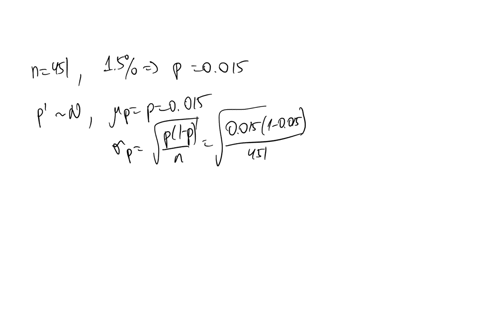 n=451, 1.5% => p=0.015
p' ~ N, μp = p = 0.015
σp = √(p(1-p)/n) = √(0.015(1-0.05)/451)